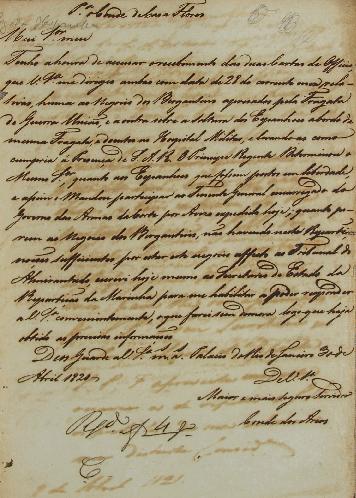 Pª o Conde de Casa Flores
Meu Sʳ. meu
Tenho a honra de accusar o recebimento das duas Cartas de Officio
que V. Sª. me dirigio ambas com data de 28 do corrente mez, rela-
tivas, huma ao Negocio dos Bergantins apresados pela Fragata
de Guerra, e a outra sobre a soltura de Espanhoes abordo da
mesma Fragata, e doentes no Hospital Militar, e levando-as como
cumpria á Presença de S. A. R. O Principe Regente Determinou o
Mesmo Sʳ. quanto aos Espanhoes que fossem postos em liberdade
e assim o Mandou participar ao Tenente General encarregado do
Governo das Armas da Corte por Aviso expedido hoje; quanto po-
rem ao Negocio dos Bergantins, não havendo nesta Reparti-
ção sufficientes por estar este negocio affecto ao Tribunal do
Almirantado escrevi hoje mesmo ao Secretario de Estado da
Repartição da Marinha para me habilitar a poder responder
a V. Sª. convenientemente, o que farei sem demora logo que haja
obtido as precisas informaçoens
Deos Guarde a V. Sª. m. a. Palacio do Rio de Janeiro 30 de
Abril 1821
De V. Sª.
Maior e mais seguro Servidor
Conde dos Arcos